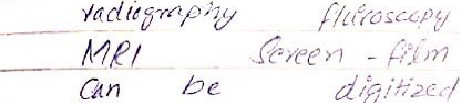 radiography fluroscopy
MRI Screen - film
Can be digitized